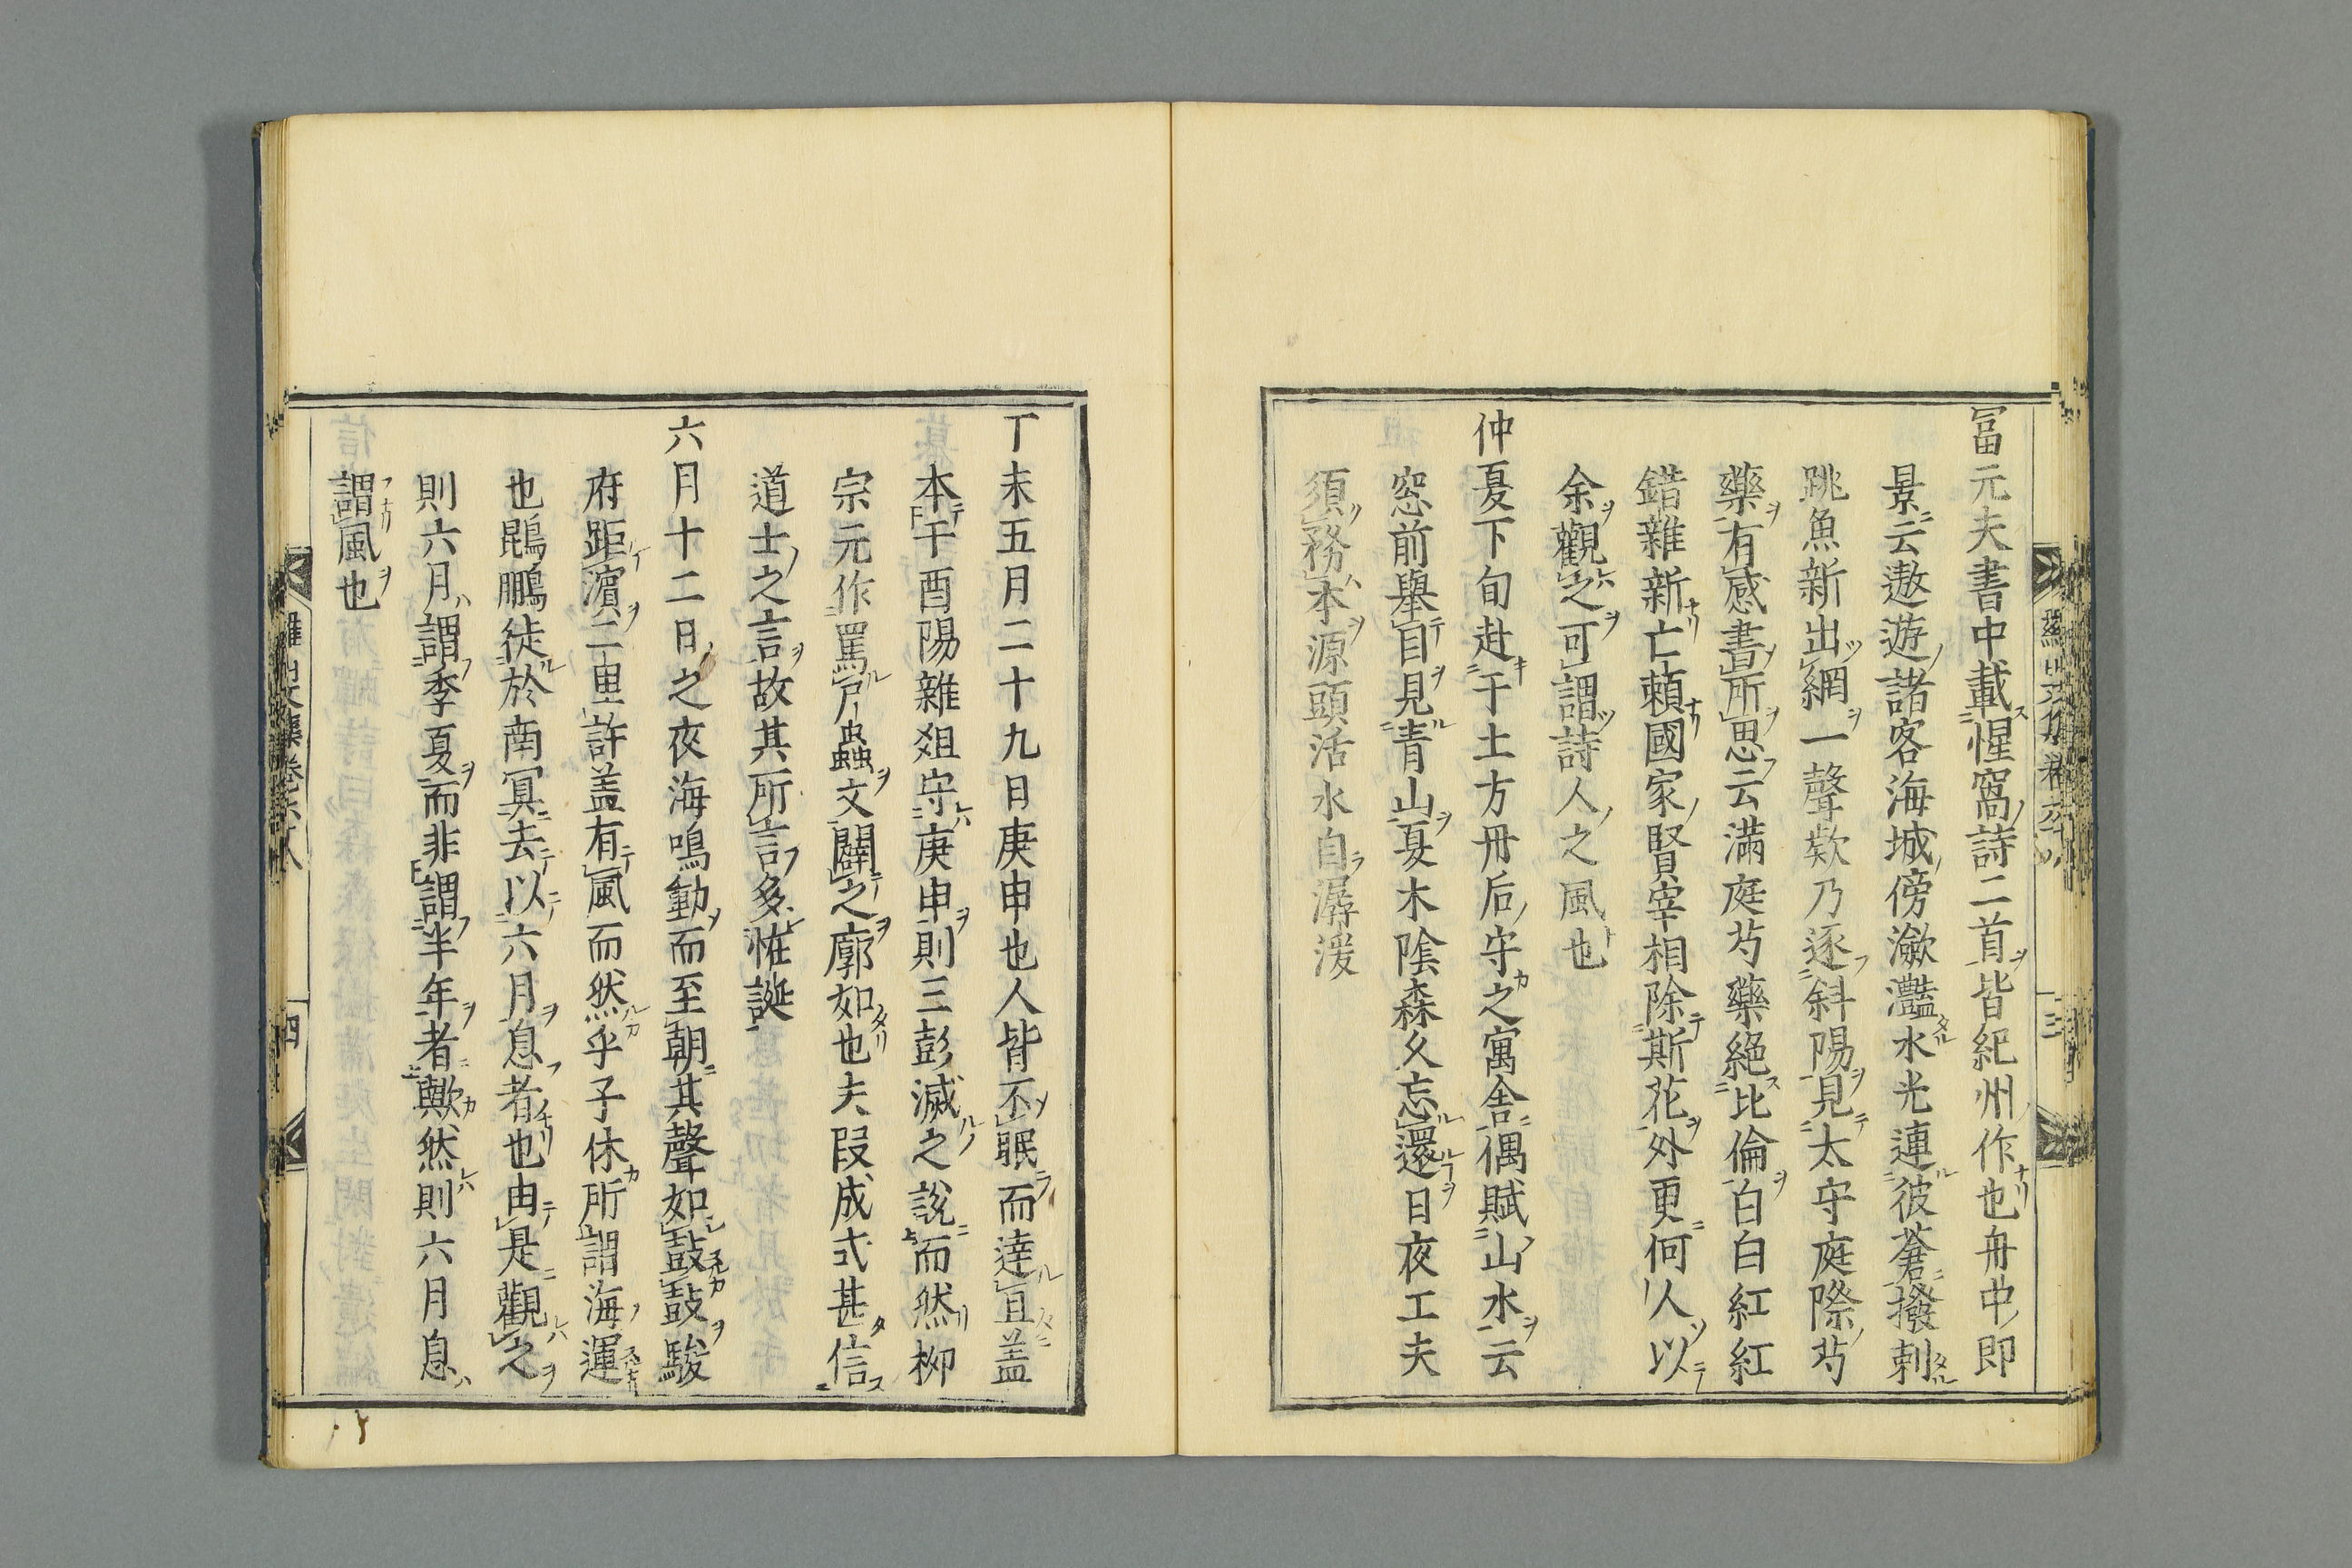 冨元夫書中載惺窩詩二首皆紀州作也舟中即
景云遨遊諸客海城傍瀲灩水光連彼蒼撥剌
跳魚新出網一聲欸乃逐斜陽見太守庭際芍
藥有感書所思云滿庭芍藥絶比倫白白紅紅
錯雜新亡頼國家賢宰相除斯花外更何人以
余觀之可謂詩人之風也
仲夏下旬赴于土方丹后守之寓舎偶賦山水云
窓前擧目見青山夏木陰森久忘還日夜工夫
須務本源頭活水自潺湲
丁未五月二十九日庚申也人皆不眠而達旦盖
本于酉陽雜爼守庚申則三彭滅之說而然柳
宗元作罵尸蟲文闢之廓如也夫段成式甚信
道士之言故其所言多恠誕
六月十二日之夜海鳴動而至朝其聲如鼓鼓駿
府距濵二里許盖有風而然乎子休所謂海運
也鵾鵬徙於南冥去以六月息者也由是觀之
則六月謂季夏而非謂半年者歟然則六月息
謂風也
羅山文集卷六十八
四
三